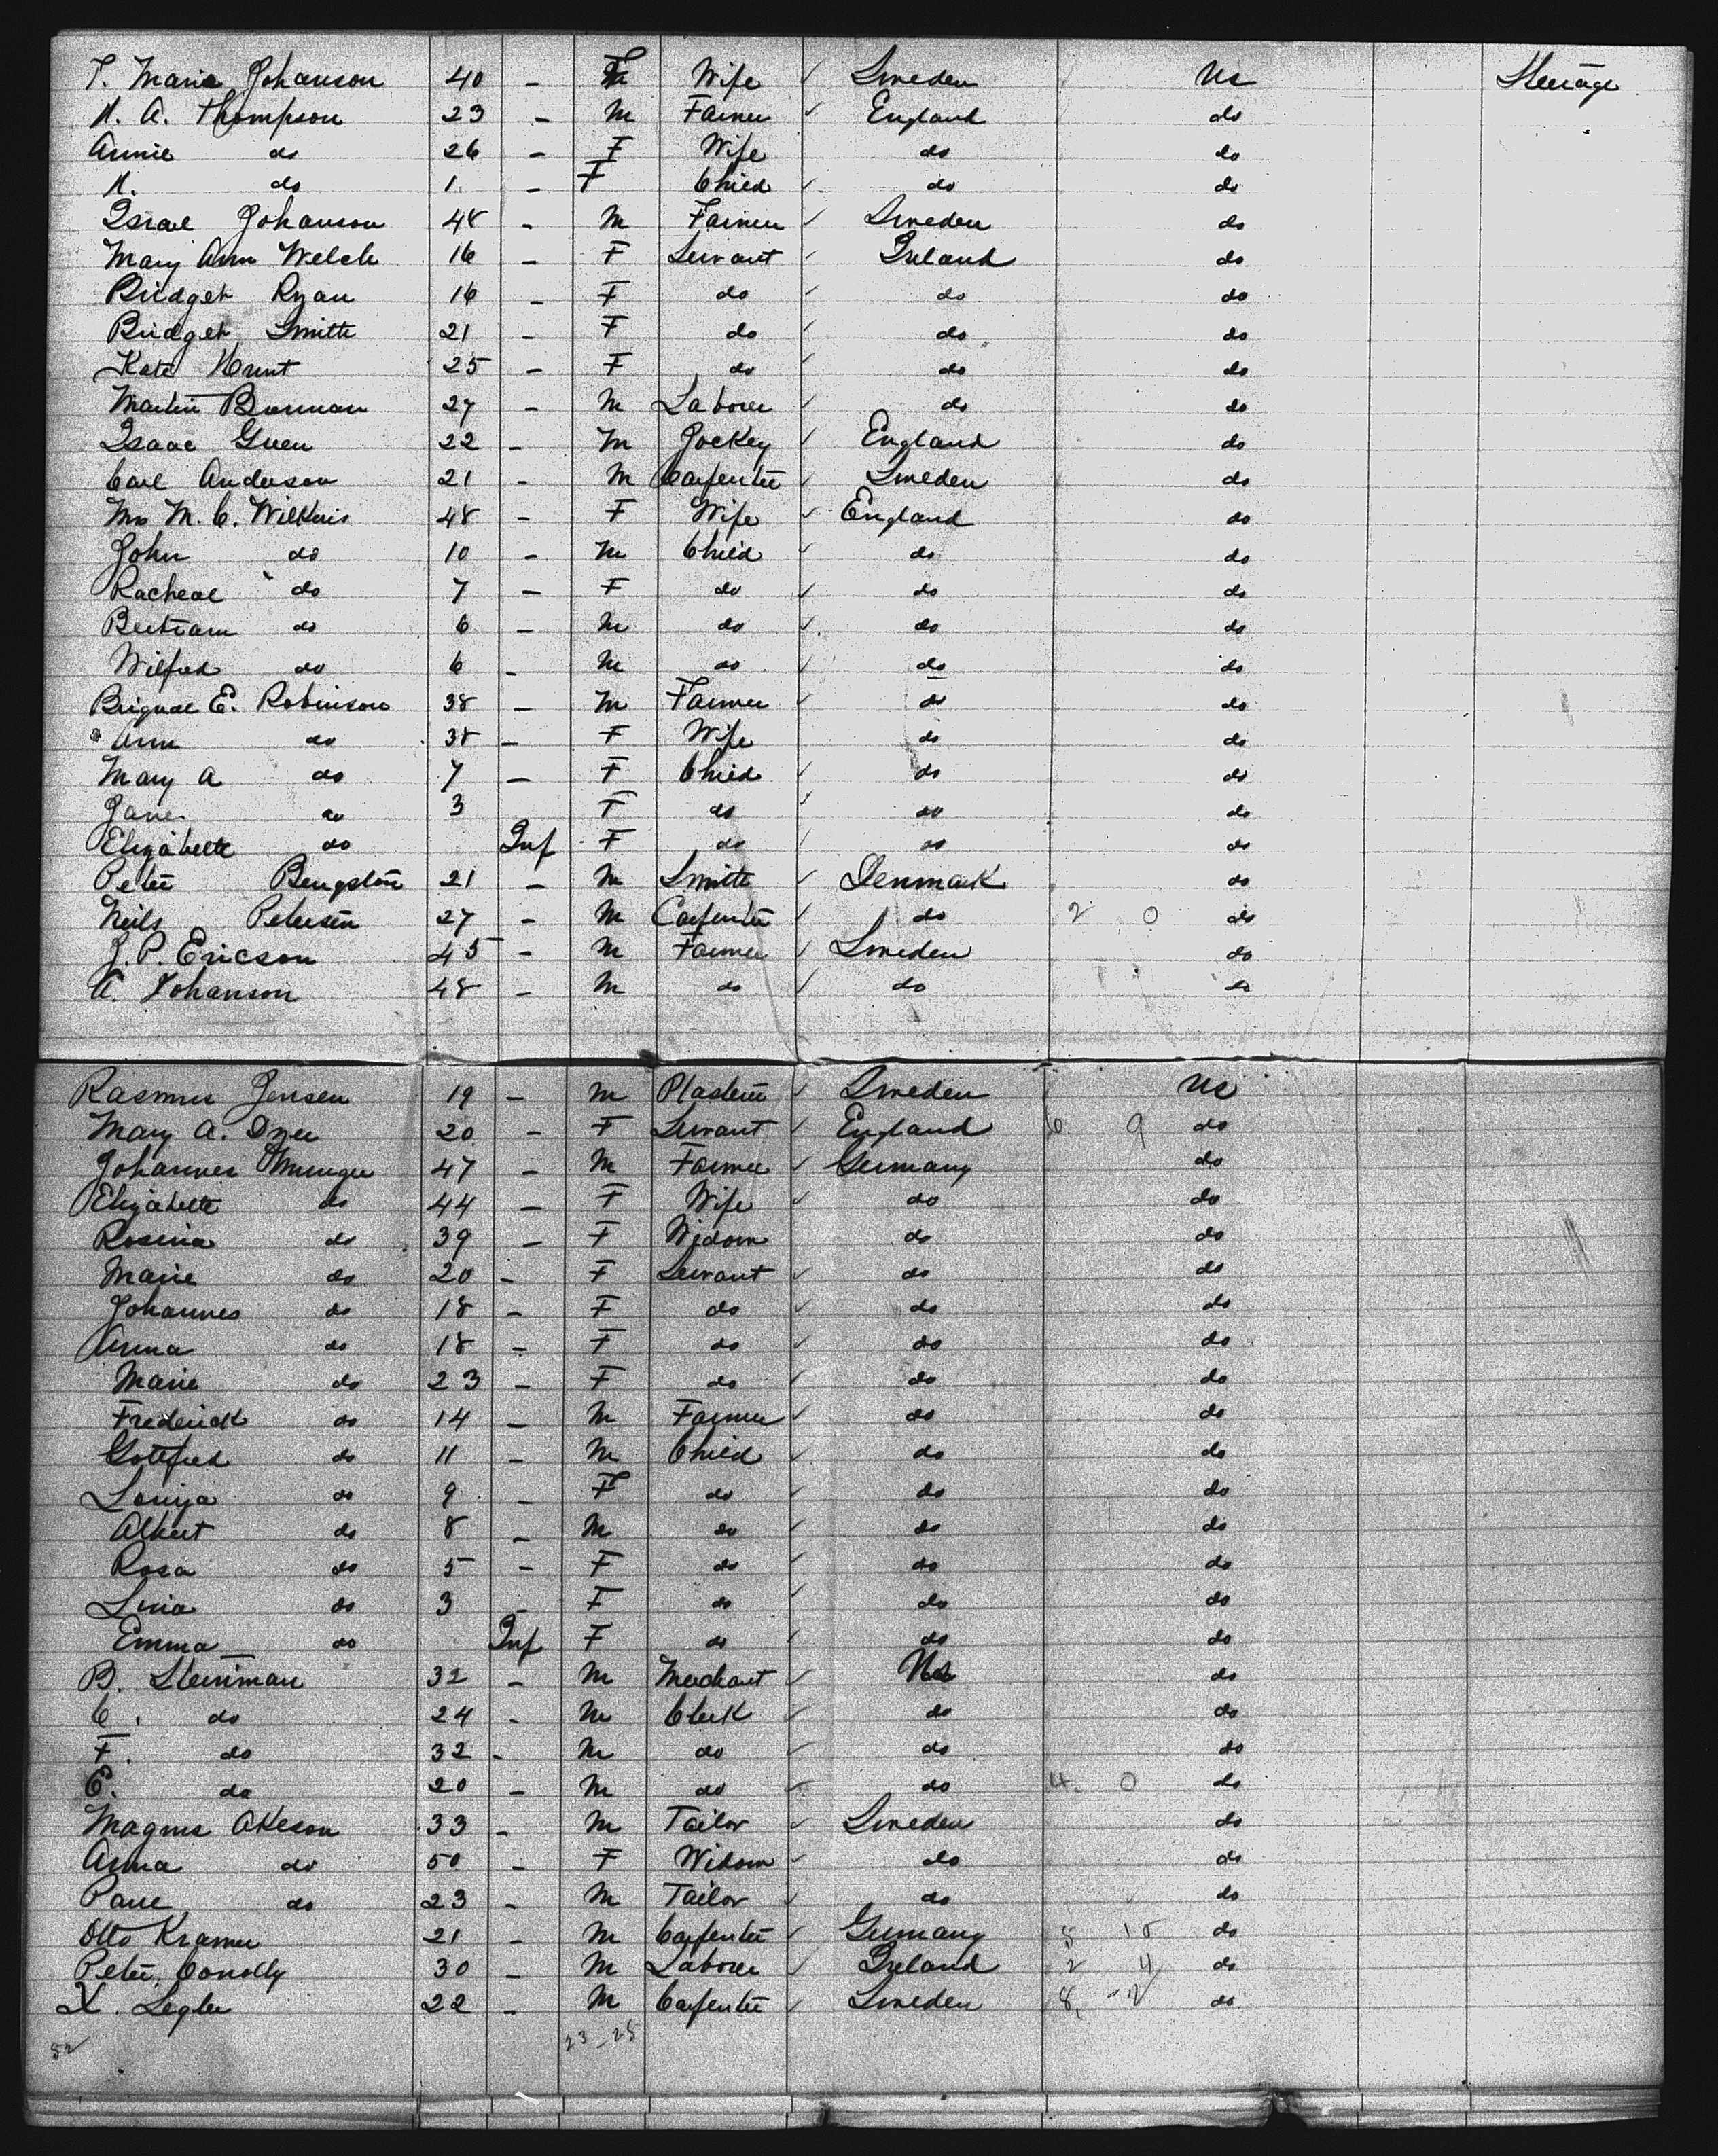 T. Maria Johanson 40 - F Wife ✓ Sweden Us Steerage
A. Thompson 23 - M Farmer ✓ England do
Annie do 26 - F Wife do do
do 1 - F Child ✓ do do
Israel Johanson 48 - M Farmer ✓ Sweden do
Mary Ann Welch 16 - F Servant ✓ Ireland do
Bridget Ryan 16 - F do ✓ do do
Bridget Smith 21 - F do ✓ do do
Kate Hunt 25 - F do ✓ do do
Martin 27 - M Laborer ✓ do do
Isaac Green 22 - M Jockey ✓ England do
Carl Anderson 21 - M Carpenter ✓ Sweden do
Mrs M. C. Wilkins 48 - F Wife ✓ England do
John do 10 - M Child ✓ do do
Racheal do 7 - F do ✓ do do
Bertram do 6 - M do ✓ do do
Wilfred do 6 - M do ✓ do do
E. Robinson 38 - M Farmer ✓ do do
Ann do 38 - F Wife do do
Mary A do 7 - F Child ✓ do do
Jane do 3 F do ✓ do do
Elizabeth do Inf F do ✓ do do
Peter Bengston 21 - M Smith ✓ Denmark do
Neils Petersen 27 - M Carpenter ✓ do 2 0 do
J. P. Ericson 45 - M Farmer ✓ Sweden do
A. Johanson 48 - M do ✓ do do
Rasmus Jensen 19 - M Plasterer ✓ Sweden Us
Mary A. Dyer 20 - F Servant ✓ England 6 9 do
Johannes 47 - M Farmer ✓ Germany do
Elizabeth do 44 - F Wife ✓ do do
Rosina do 39 - F Widow do do
Marie do 20 - F Servant ✓ do do
Johannes do 18 - F do ✓ do do
Anna do 18 - F do ✓ do do
Marie do 23 - F do ✓ do do
Frederick do 14 - M Farmer ✓ do do
Gottfred do 11 - M Child ✓ do do
Louiza do 9 - F do ✓ do do
Albert do 8 - M do ✓ do do
Rosa do 5 - F do ✓ do do
Lina do 3 - F do ✓ do do
Emma do Inf F do ✓ do do
B. Steinman 32 - M Merchant ✓ Us do
C. do 24 - M Clerk ✓ do do
F. do 32 - M do ✓ do do
E. do 20 - M do ✓ do 4 0 do
Magnus Akeson 33 - M Tailor ✓ Sweden do
Anna do 50 - F Widow ✓ do do
do 23 - M Tailor ✓ do do
Otto Kramer 21 - M Carpenter ✓ Germany do
Peter Conolly 30 - M Laborer ✓ Ireland 2 4 do
Legler 22 - M Carpenter ✓ Sweden 8 2 do
52 23-25